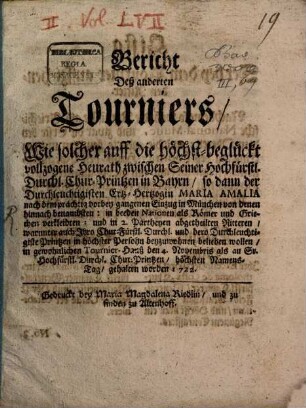 II Vol. LVII
19
BIBLIOTHECA
REGIA
MONACENSIS
Bericht
Deß anderten
Tourniers/
Wie solcher auff die höchst-beglückt
vollzogene Heurath zwischen Seiner Hochfürstl.
Durchl. Chur-Printzen in Bayrn / so dann der
Durchleuchtigisten Ertz-Hertzogin MARIA AMALIA
nach dem prächtig vorbey gangenen Einzug in München von denen
hinnach benambten : in beeden Nationen als Römer und Grie-
chen verkleiten : und in 2. Parthyen abgetheilten Rittern /
worinnen auch Ihro Chur-Fürstl. Durchl. und dero Durchleuchti-
gste Printzen in höchster Persohn beyzuwohnen belieben wollen /
in gewohnlichen Tournier-Hauß den 4. Novembris als an Sr.
Hochfürstl. Durchl. Chur-Printzen / höchsten Namens-
Tag / gehalten worden 1722.
Gedruckt bey Maria Magdalena Riedlin / und zu
finden zu Altenhoff.